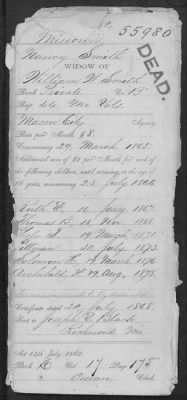 No. 55980
Missouri
DEAD.
Nancy Smith
WIDOW OF
William W Smith
Rank Private Co. "B"
Reg. 44 Mo Vols
Macon City Agency
Rate per Month $8.
Commencing 29, March 1865.
Additional sum of $2 per month for each of
the following children, until arriving at the age of
16 years, commencing 25 July 1866.
16 Jany. 1867.
Thomas B. 16 Nov. 1868.
19 March 1871.
30 July 1873.
Solomon 19 March 1876
Archibald 19 Aug. 1878.
Certificate dated 20 July 1868.
Sent to Joseph E. Black
Richmond Mo
Act 14th July, 1862
Book Vol. 17 Page 175
Clerk.